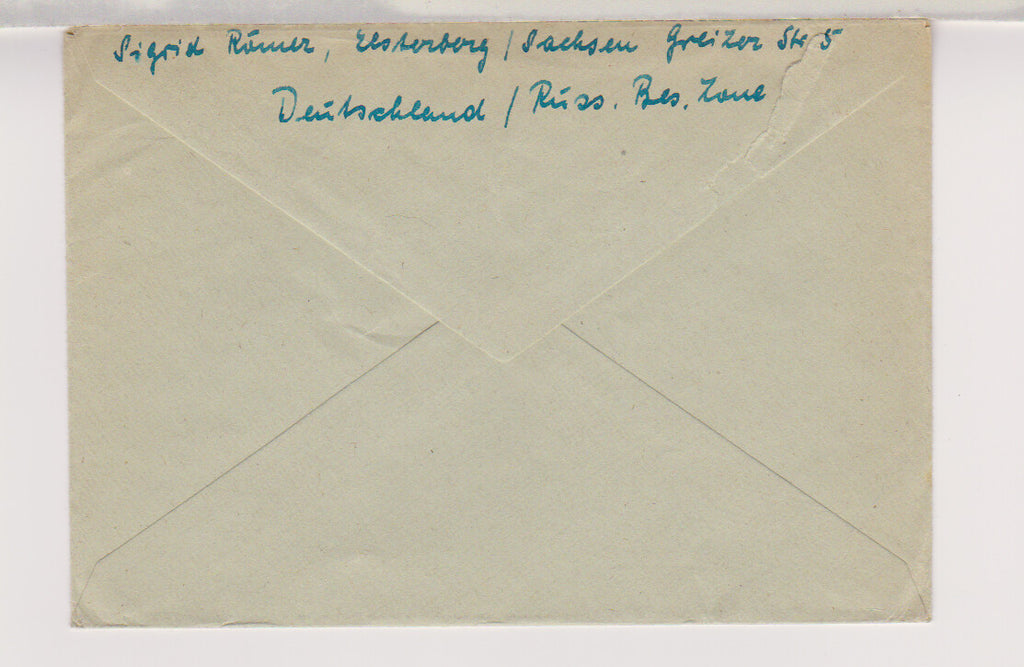 Sigrid Römer, Elsterberg / Sachsen Greizer Str. 5
Deutschland / Russ. Bes. Zone